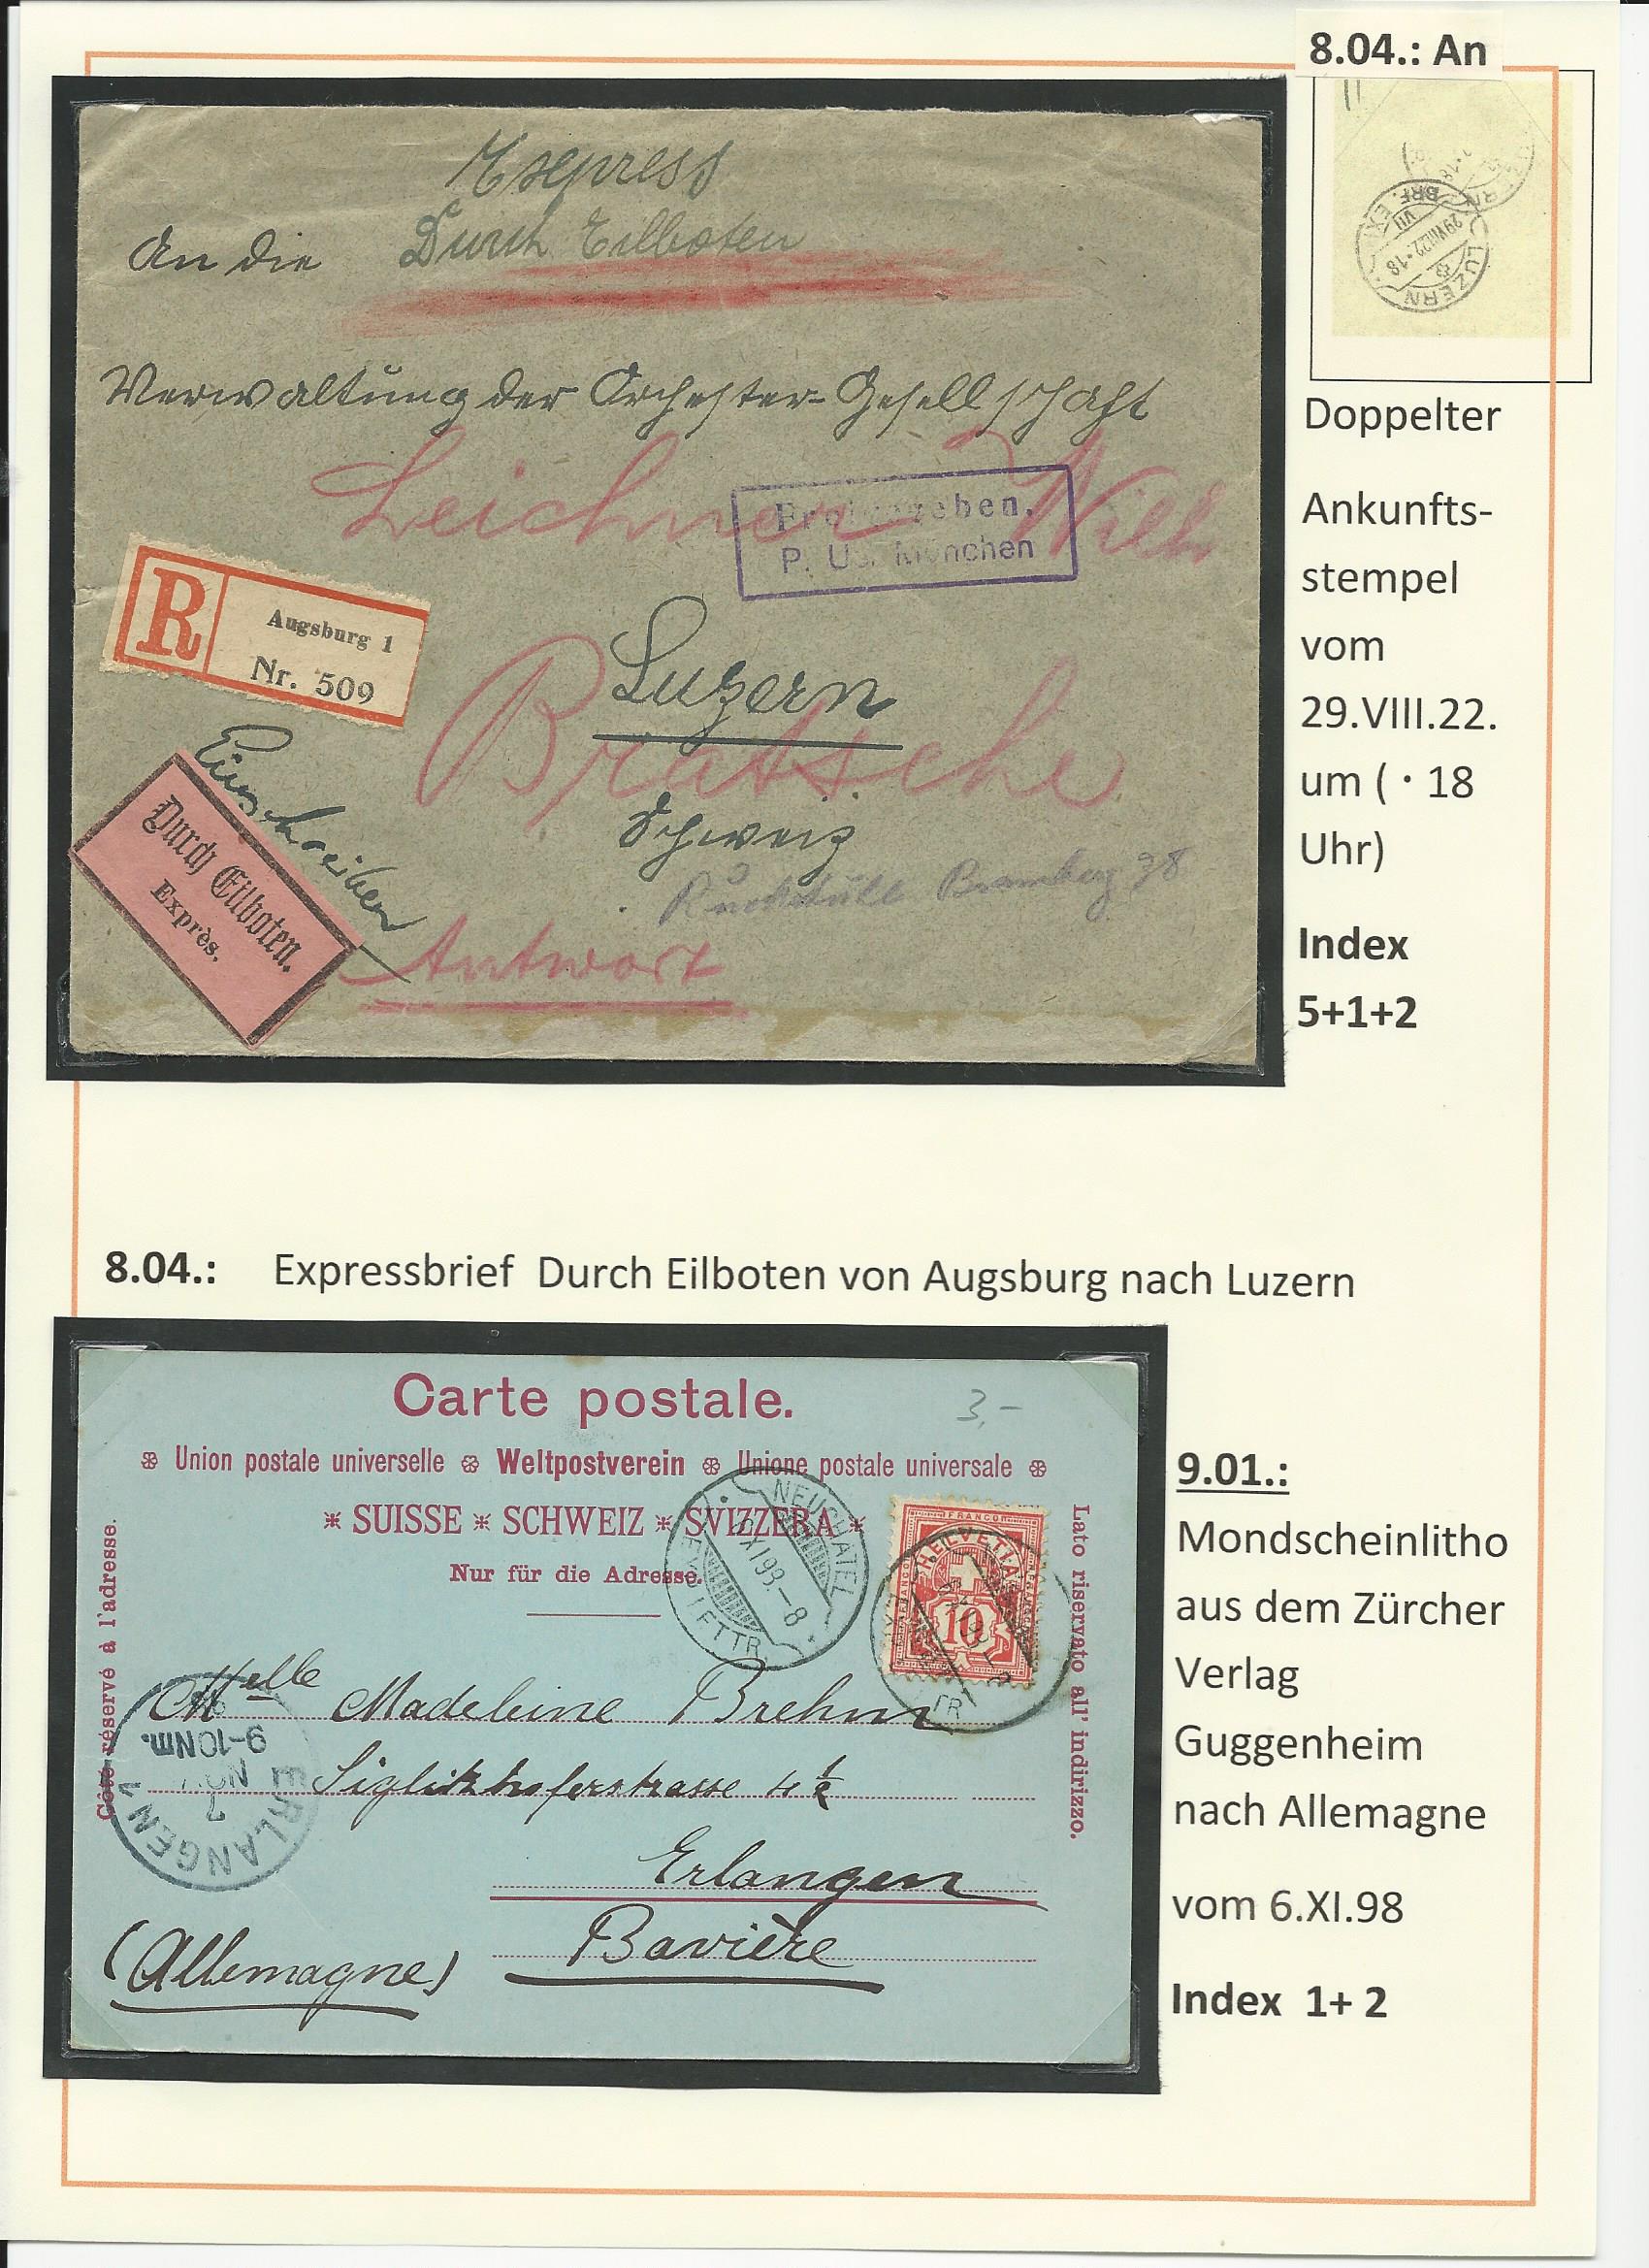 8.04.: An
Express
An die Durch Eilboten
Verwaltung der Orchester-Gesellschaft
Leichner Willi
Freigegeben.
P. Ü. München
R
Augsburg 1
Nr. 509
Luzern
Bratsche
Schweiz
Einschreiben
Durch Eilboten.
Exprès.
Bramberg 38
Antwort
LUZERN
29.VIII.22.18
VII
BRF. EX.
Doppelter
Ankunfts-
stempel
vom
29.VIII.22.
um ( · 18
Uhr)
Index
5+1+2
8.04.: Expressbrief Durch Eilboten von Augsburg nach Luzern
Carte postale.
3,-
Union postale universelle Weltpostverein Unione postale universale
SUISSE SCHWEIZ SVIZZERA
Nur für die Adresse.
Côté réservé à l'adresse.
Lato riservato all' indirizzo.
NEUCHATEL
6 XI 98.-8
EXP. LETTR.
FRANCO
HELVETIA
10
Melle Madeleine Brehm
Siglitzhoferstrasse 4½
Erlangen
Bavière
(Allemagne)
ERLANGEN
7
NOV
9-10Nm.
9.01.:
Mondscheinlitho
aus dem Zürcher
Verlag
Guggenheim
nach Allemagne
vom 6.XI.98
Index 1+ 2